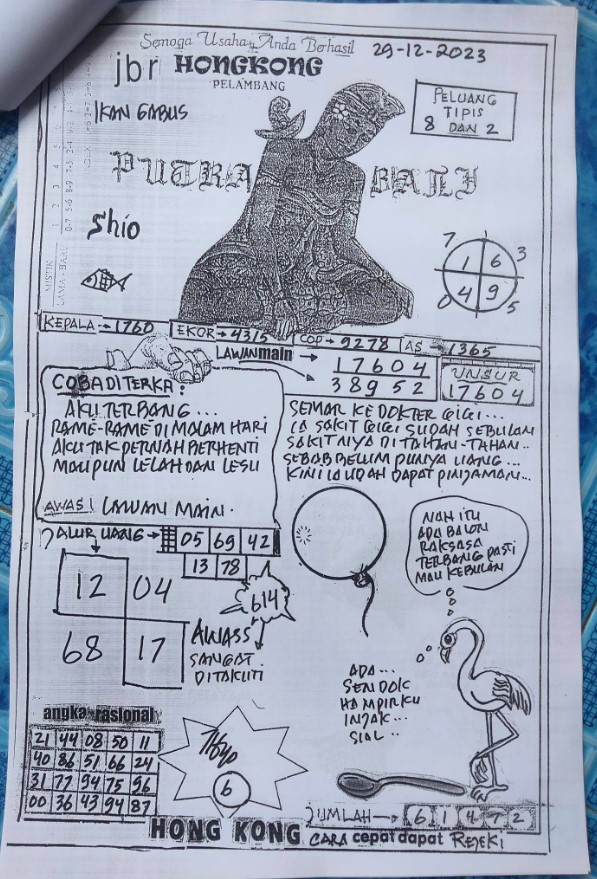 Semoga Usaha Anda Berhasil
29-12-2023
jbr HONGKONG
PELAMBANG
IKAN GABUS
PELUANG
TIPIS
8 DAN 2
PUTRA BALI
Shio
7 1 6 3
0 4 9 5
MISTIK
LAMA - BARU
KEPALA → 1760
EKOR → 4315
COP → 9278
AS → 1365
LAWAN main →
17604
38952
UNSUR
17604
COBA DITERKA :
AKU TERBANG...
RAME-RAME DI MALAM HARI
AKU TAK PERNAH BERHENTI
MAUPUN LELAH DAN LESU
AWAS! LAWAN MAIN.
SEMAR KE DOKTER GIGI...
IA SAKIT GIGI SUDAH SEBULAN
SAKITNYA DI TAHAN-TAHAN..
SEBAB BELUM PUNYA UANG...
KINI IA UDAH DAPAT PINJAMAN...
JALUR UANG → 05 69 42
13 78
12 04
68 17
614
AWASS
SANGAT
DITAKUTI
NAH ITU
ADA BALON
RAKSASA
TERBANG PASTI
MAU KEBULAN
ADA...
SENDOK
HAMPIR KU
INJAK...
SIAL..
angka rasional
21 44 08 50 11
40 86 51 66 24
31 77 94 75 96
00 36 43 94 87
6
JUMLAH → 6 1 4 7 2
HONG KONG CARA cepat dapat REJEKI